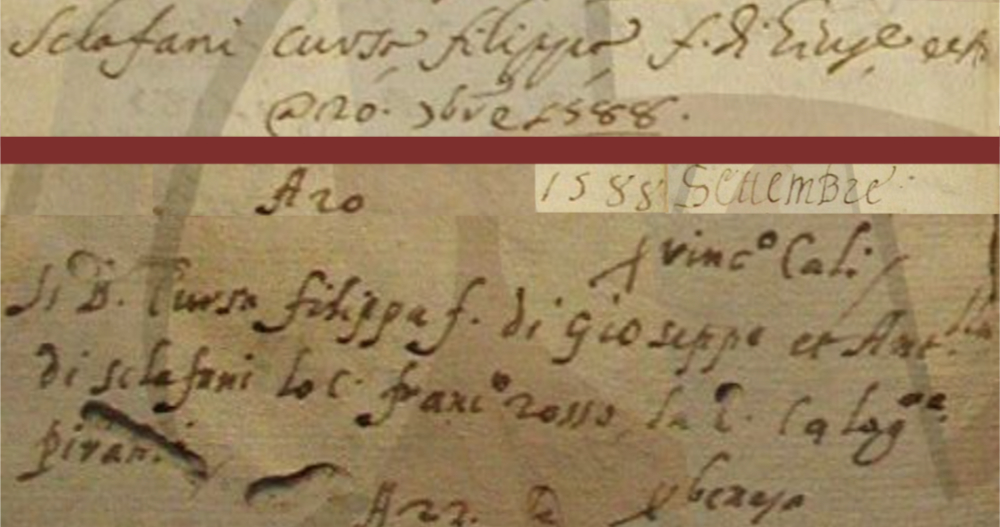 Sclafani Cursa filippa f. di Giuse et A
A 20. 7bre 1588.
A 20
1588 Settembre
p vinc° Cali
Si B. Cursa filippa f. di gioseppe et Ant.lla
di sclafani lo C. franc° rosso, la C. Calog.ra
pirar
A 22. D p benesa